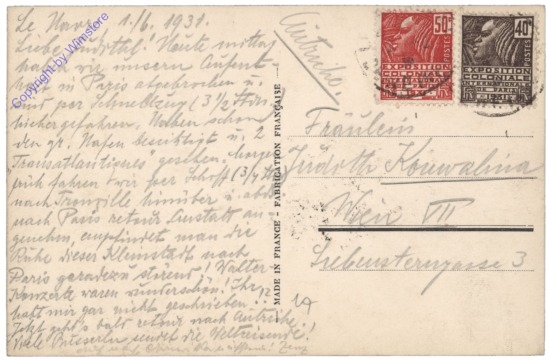 Le Havre 1./6. 1931.
Liebe Judotth! Heute mittag
haben wir unseren Aufent
halt in Paris abgebrochen u.
sind per Schnellzug (3 1/2 Std.)
hierhergefahren. Haben schon
den gr. Hafen besichtigt u. 2
Transatlantiques gesehen, morgen
früh fahren wir per Schiff (3/4
nach Trouville hinüber u. abds
nach Paris retour. Anstatt an-
genehm, empfindet man die
Ruhe dieser Kleinstadt nach
Paris geradezu störend! Walter-
Konzerte waren wunderschön! Ihr
habt mir gar nicht geschrieben!!
Jetzt geht's bald retour nach Autriche!
Viele Busserln sendet die Weltreisende!
Autriche.
Fräulein
Judoth Konwalina
Wien VII
Siebensterngasse 3
MADE IN FRANCE - FABRICATION FRANÇAISE
50c
POSTES
EXPOSITION
COLONIALE
INTERNATIONALE
DE PARIS
1931
40c
POSTES
EXPOSITION
COLONIALE
INTERNATIONALE
DE PARIS
1931
Copyright by Wimstore